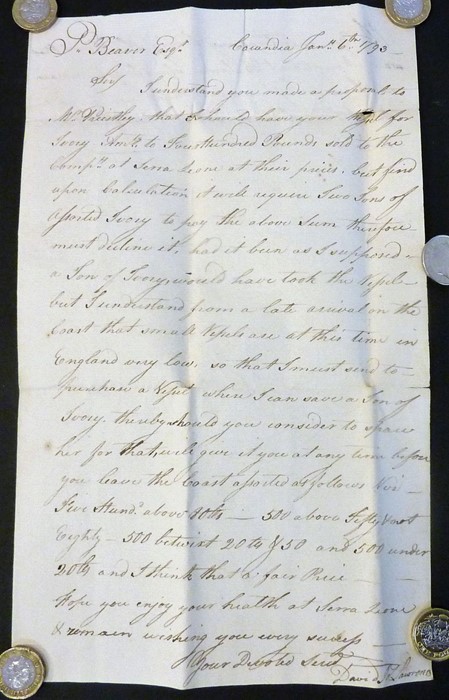 P. Beaver Esqr. Cacundia Jany. 6th 1793
Sir
I understand you made a proposal to
Mr. that I should have your Vessel for
Ivory Amt. to Four Hundred Pounds sold to the
Compy. at Serra Leone at their prices. but find
upon Calculation it will require Two Tons of
assorted Ivory to pay the above Sum therefore
must decline it, had it been as I supposed
a Ton of Ivory, would have took the Vessel
but I understand from a late arrival on the
Coast that small Vessels are at this time in
England very low, so that I must send to
purchase a Vessel where I can save a Ton of
Ivory. thereby should you consider to spare
her for that, will give it you at any time before
you leave the Coast assorted as follows Viz
Five Hundd. above 80lb — 500 above Fifty & not
Eighty — 500 betwixt 20lb & 50 and 500 under
20lb and I think that a fair Price
Hope you enjoy your health at Serra Leone
& remain wishing you every success
Your Devoted Servt
David Lawrence